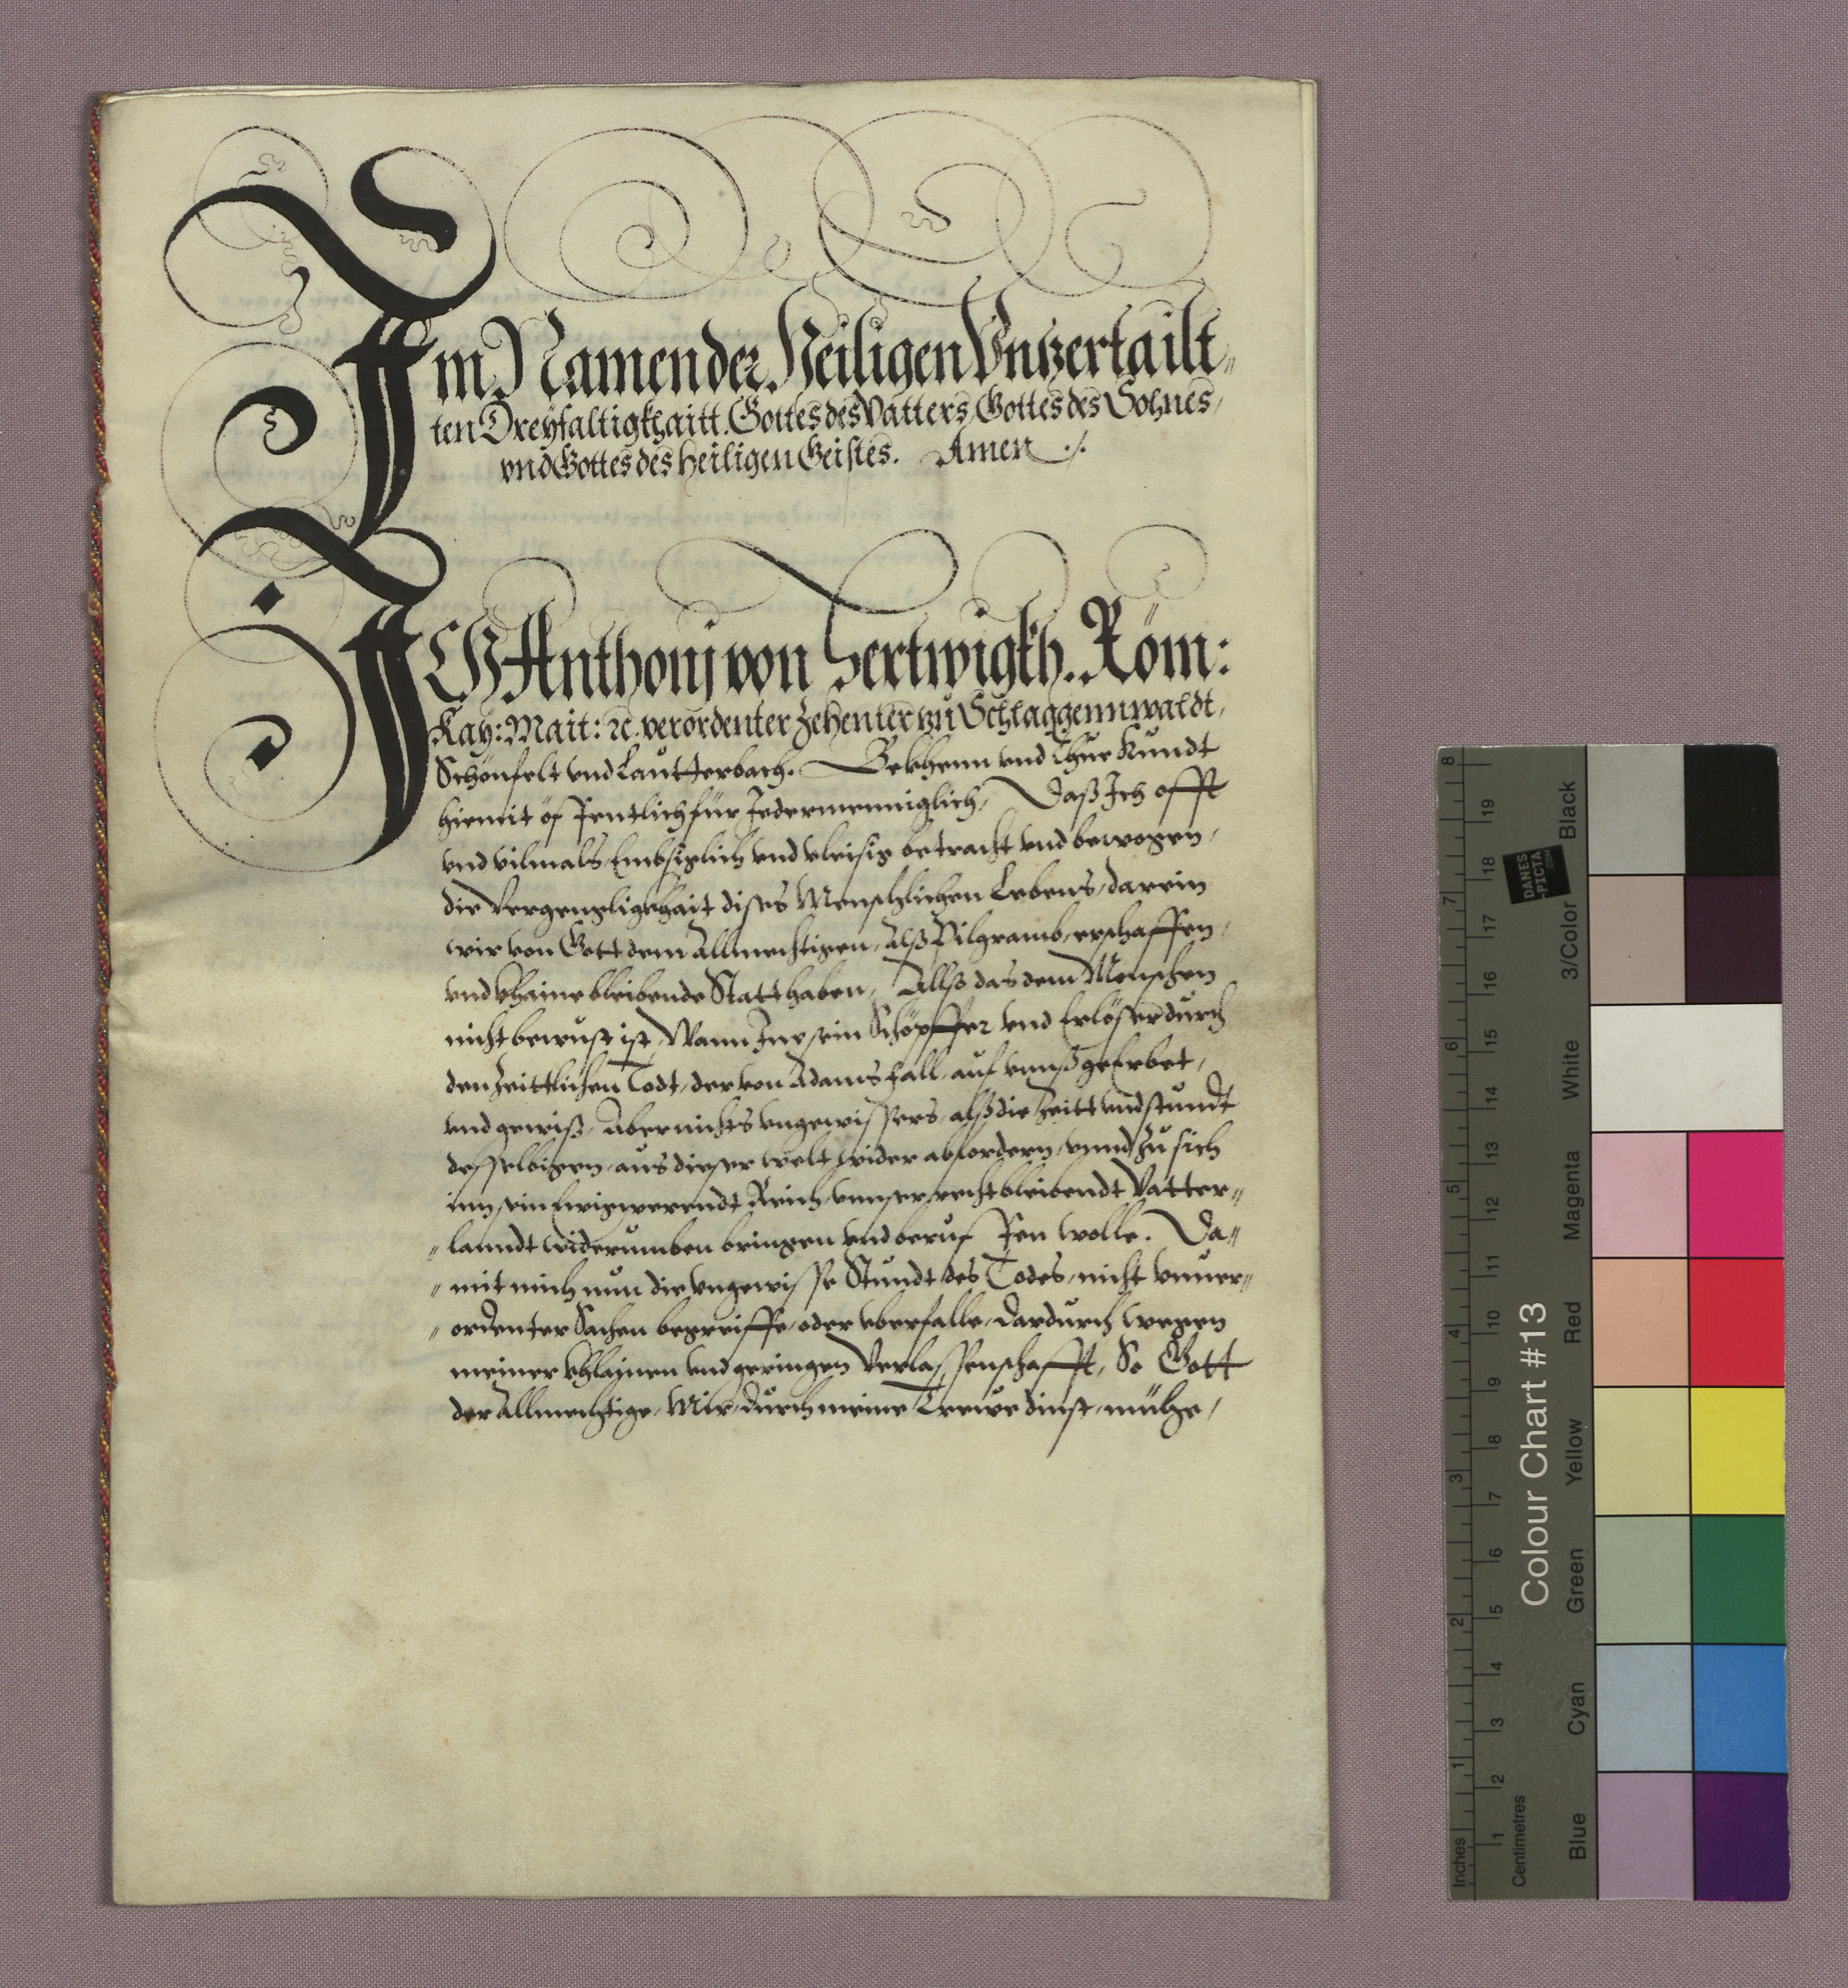 Im Namen der Heiligen Vnzertailt„
ten Dreyfaltigkhaitt. Gottes des Vatters, Gottes des Sohnes,
vnd Gottes des heiligen Geistes. Amen ./.
ICH Anthonj von Hertwigkh. Röm:
Kay: Mait: ꝛc. verordenter Zehenter zu Schlaggennwaldt,
Schönfelt vnd Lautterbach. Bekhenn vnd Thue Kundt
hiemit öffentlich für Jedermenniglich, Daß Ich offt
vnd vilmals, Embsiglich vnd vleisig betracht vnd bewogen,
die Vergengligkhait dises Menschlichen Lebens, darein
wir von Gott dem Allmechtigen, Alß Pilgramb, erschaffen,
vnd khaine bleibende Statt haben, Allß das dem Menschen
nicht bewust ist, Wann Ine sein Schöpffer vnd Erlöser durch
den Zeittlichen Todt, der von Adams Fall, auf vnnß geErbet,
vnd gewiß, Aber nichts vngewissers, alß die Zeitt vnd stundt
desselbigen, aus dieser welt wider abfordern, vnnd Zu sich
inn sein Ewigwerendt Reich, vnnser recht bleibendt Vatter„
„ lanndt widerumben bringen vnd beruffen wolle. Da„
„ mit mich nun die vngewisse Stundt des Todes, nicht vnuer„
„ ordenter Sachen begreiffe, oder vberfalle, dardurch wegen
meiner khlainen vnd geringen Verlassenschafft, So Gott
der Allmechtige, Mir, durch meine Treue dinst, mühe,
8
7
6
5
4
3
2
1
Inches
19
18
17
16
15
14
13
12
11
10
9
8
7
6
5
4
3
2
1
Centimetres
Colour Chart #13
DANES
PICTA
.COM
Black
3/Color
White
Magenta
Red
Yellow
Green
Cyan
Blue